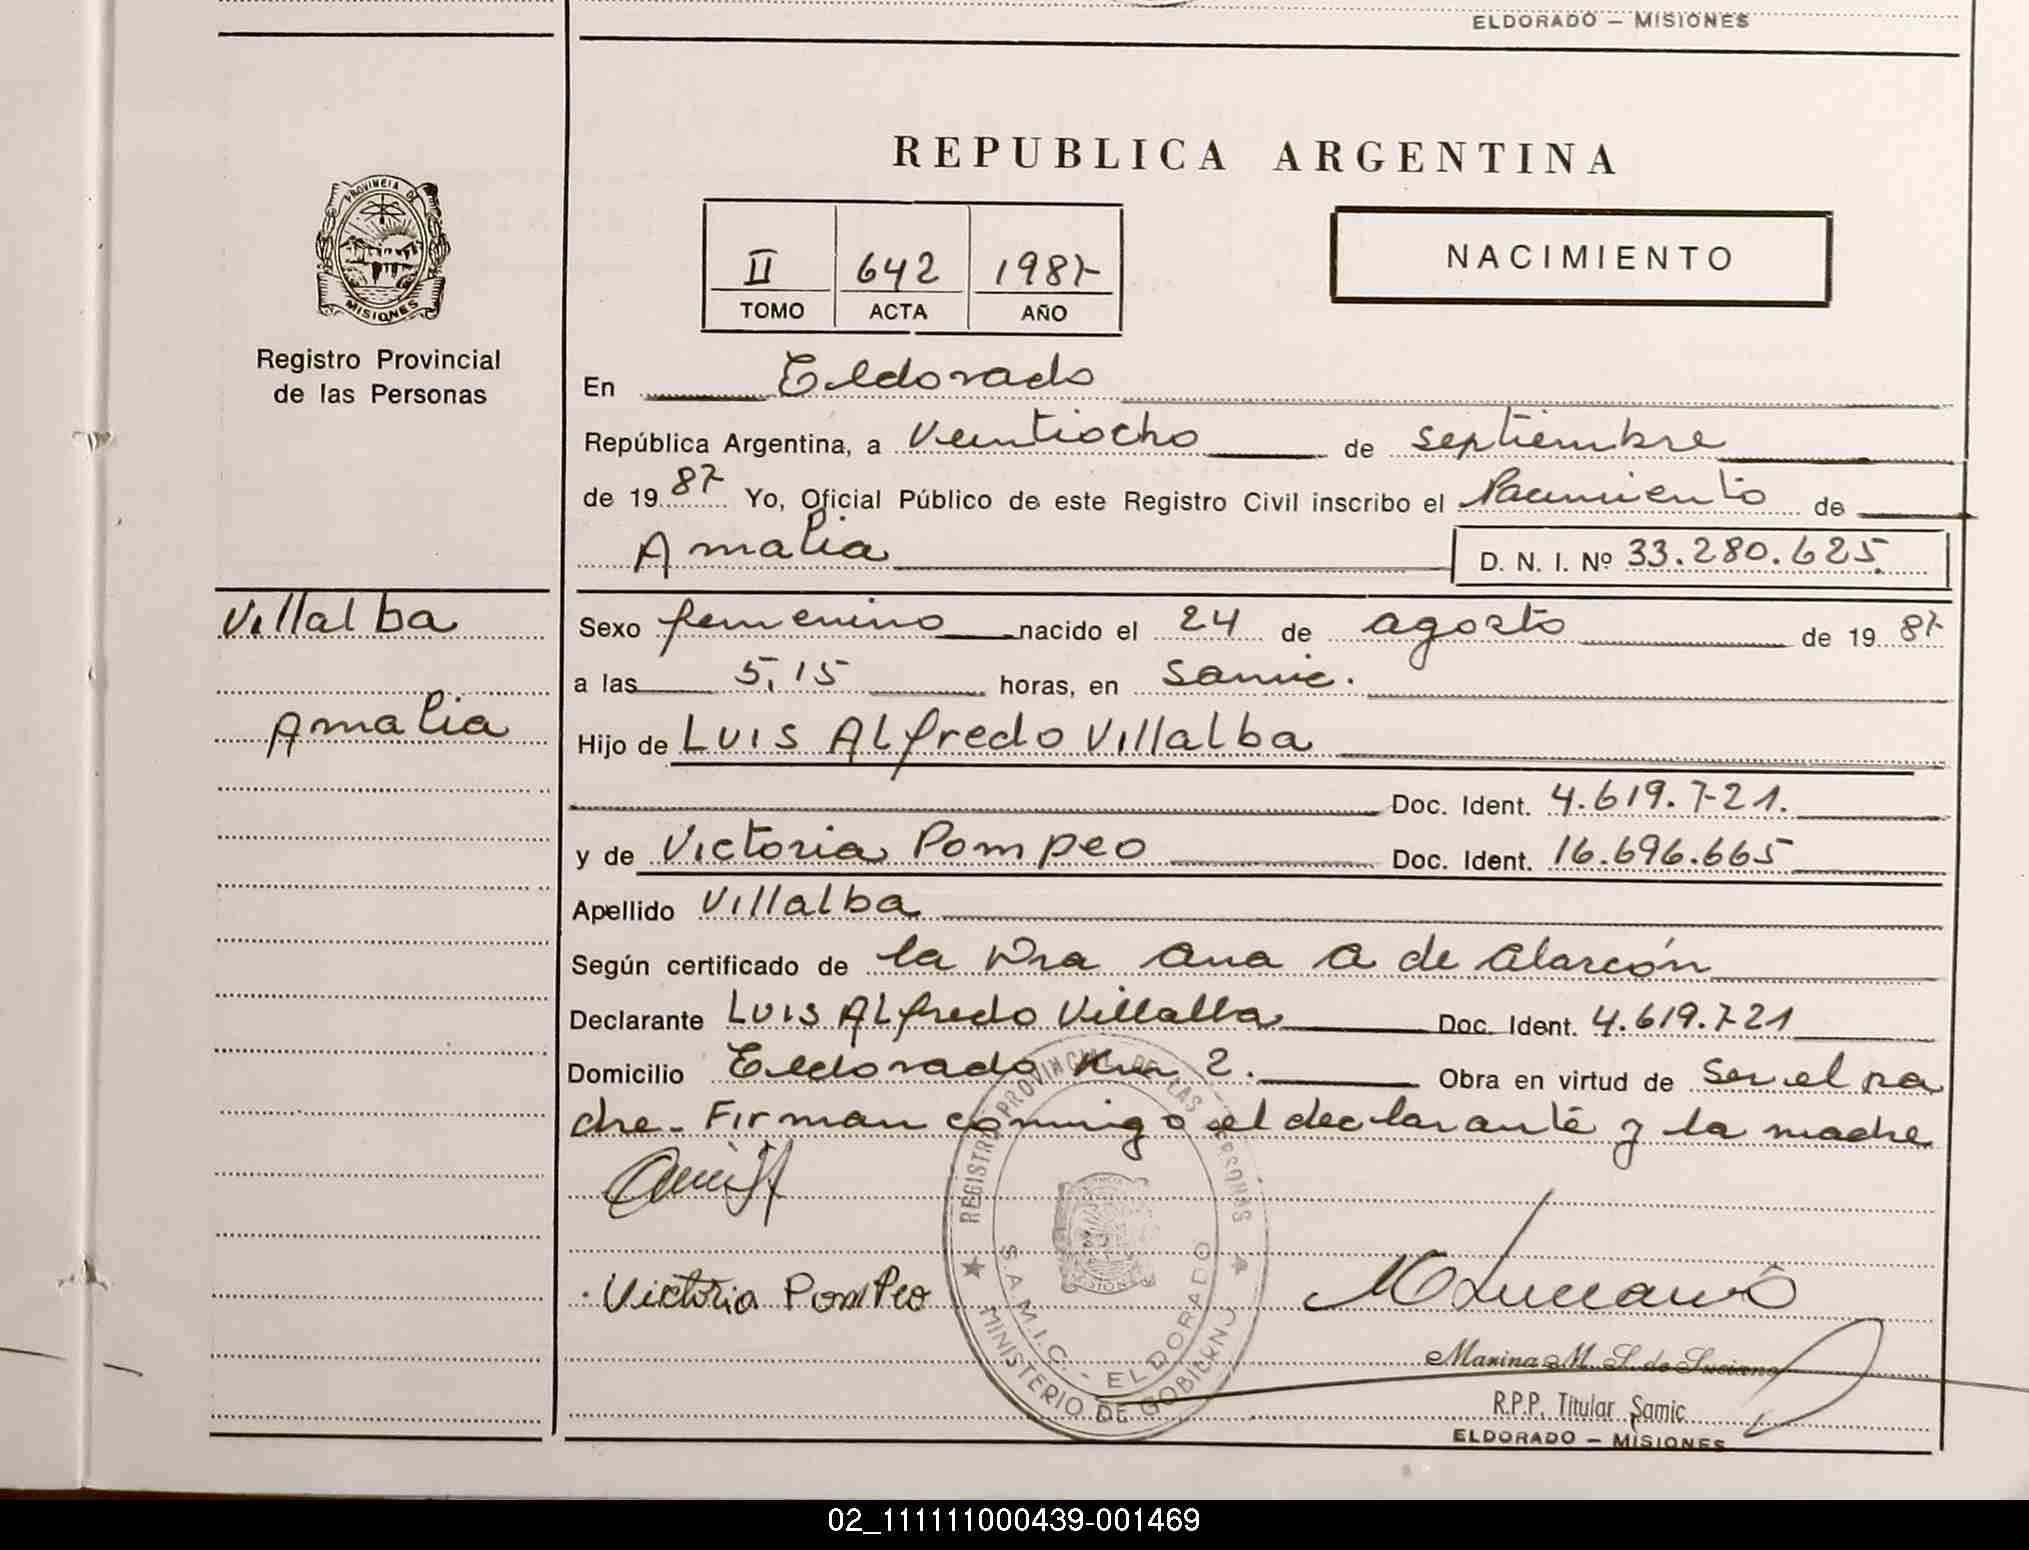 ELDORADO – MISIONES
REPUBLICA ARGENTINA
PROVINCIA DE
MISIONES
Registro Provincial
de las Personas
II 642 1987
TOMO ACTA AÑO
NACIMIENTO
En Eldorado
República Argentina, a Veintiocho de septiembre
de 19 87 Yo, Oficial Público de este Registro Civil inscribo el Nacimiento de
Amalia D. N. I. Nº 33.280.625.
Villalba
Amalia
Sexo femenino nacido el 24 de agosto de 19 87
a las 5,15 horas, en Samic.
Hijo de Luis Alfredo Villalba
Doc. Ident. 4.619.721.
y de Victoria Pompeo Doc. Ident. 16.696.665
Apellido Villalba
Según certificado de la Dra Ana A de Alarcón
Declarante Luis Alfredo Villalba Doc. Ident. 4.619.721
Domicilio Eldorado Km 2. Obra en virtud de Ser el pa
dre - Firman conmigo el declarante y la madre
Victoria Pompeo
REGISTRO PROVINCIAL DE LAS PERSONAS
S.A.M.I.C. - ELDORADO
MINISTERIO DE GOBIERNO
Marina M. S. de Luciano
R.P.P. Titular Samic
ELDORADO – MISIONES
02_111111000439-001469